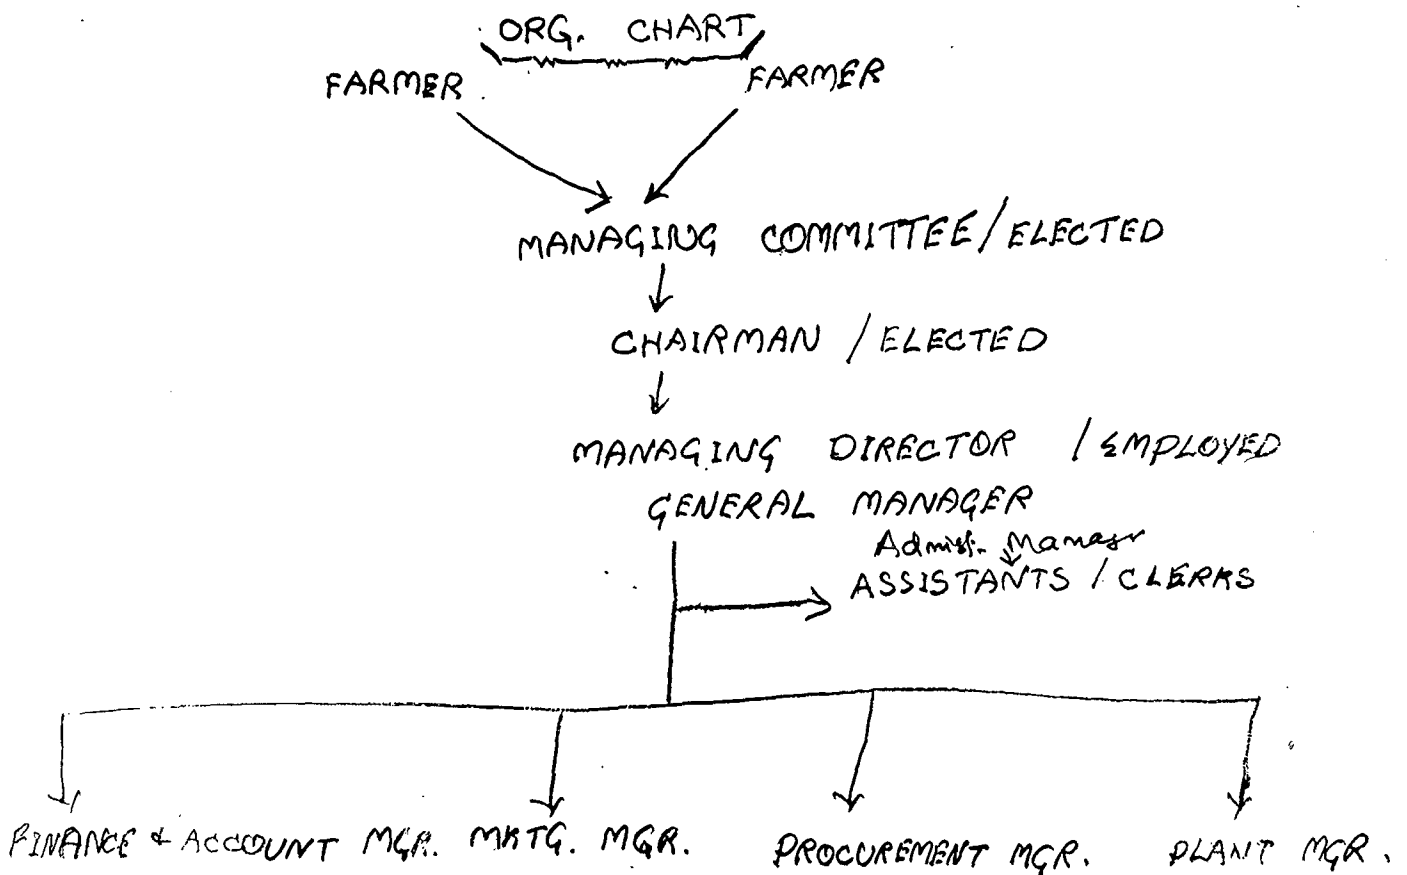 ORG. CHART
FARMER FARMER
MANAGING COMMITTEE/ELECTED
CHAIRMAN / ELECTED
MANAGING DIRECTOR / EMPLOYED
GENERAL MANAGER
Admist. Manager
ASSISTANTS / CLERKS
FINANCE & ACCOUNT MGR. MKTG. MGR. PROCUREMENT MGR. PLANT MGR.